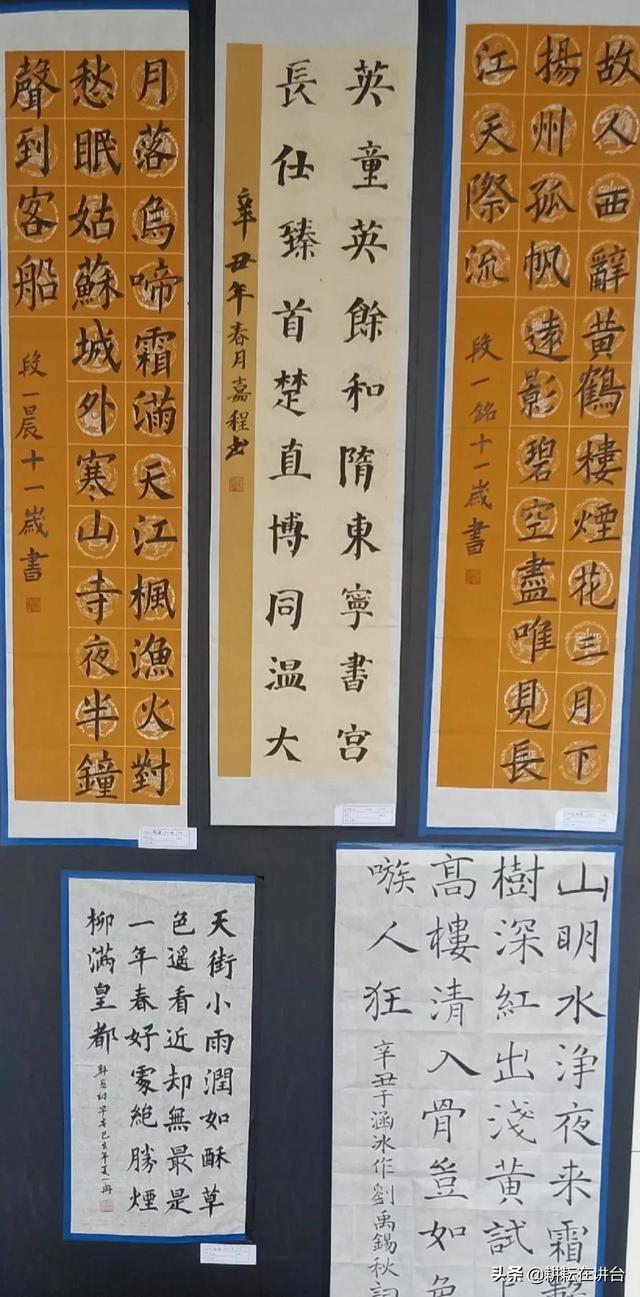 月落烏啼霜滿天江楓漁火對
愁眠姑蘇城外寒山寺夜半鐘
聲到客船
段一晨十一歲書
英童英餘和隋東寧書宮
長仕臻首楚直博同温大
辛丑年春月嘉程书
故人西辭黃鶴樓煙花三月下
揚州孤帆遠影碧空盡唯見長
江天際流
段一銘十一歲書
天街小雨潤如酥草
色遥看近却無最是
一年春好處絕勝煙
柳滿皇都
山明水浄夜来霜
樹深紅出淺黃試
高樓清入骨豈如色
嗾人狂
辛丑于涵冰作劉禹錫秋詞
头条 @耕耘在讲台